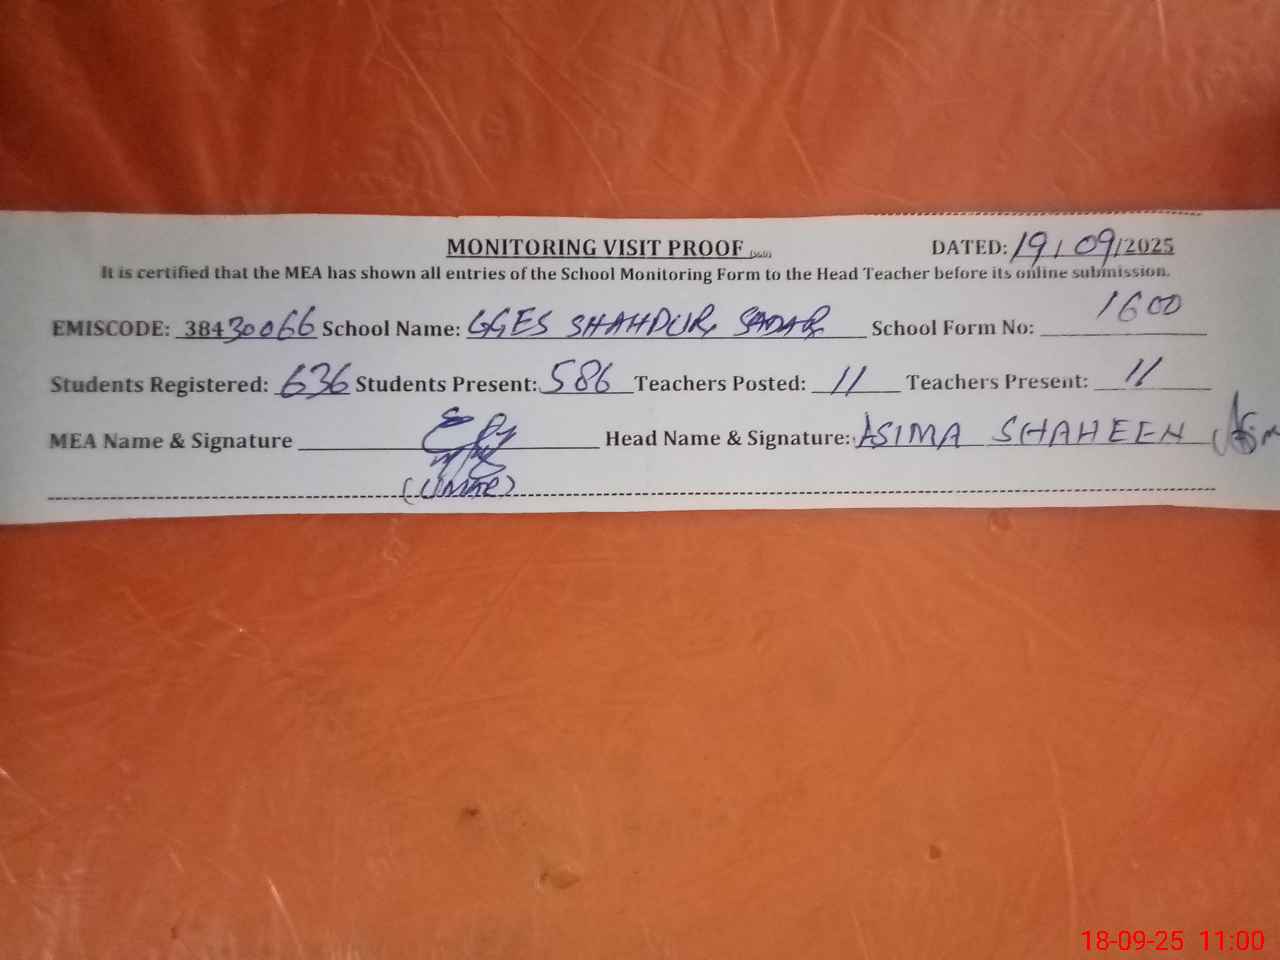 MONITORING VISIT PROOF DATED: 19/09/2025
It is certified that the MEA has shown all entries of the School Monitoring Form to the Head Teacher before its online submission.
EMISCODE: 38430066 School Name: GGES SHAHPUR SADAR School Form No: 1600
Students Registered: 636 Students Present: 586 Teachers Posted: 11 Teachers Present: 11
MEA Name & Signature Head Name & Signature: ASIMA SHAHEEN
(UMAR)
18-09-25 11:00